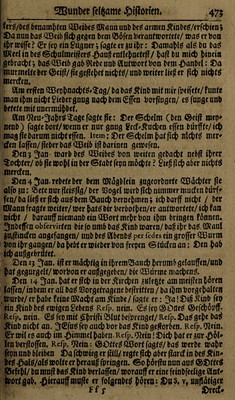 Wunder seltzame Historien. 473
kers/des benamhten Weibes Mann und des armen Kindes/erschien;
Da nun das Weib sich gegen dem Bösen verantwortete/ was er von
ihr wisse? Er sey ein Lugner; sagte er zu ihr: Damahls als du das
Mel in des Schulmeisters Haus entlehntest/ hast du mich hinein
gebracht; das Weib gab Rede und Antwort von dem Handel: Da
murmelte der Geist/ sie gestehet nichts/ und weiter ließ er sich nichts
mercken.
Am ersten Weyhnachts-Tag/ da das Kind mit mir speisete/ kunte
man ihm nicht Lieder gnug nach dem Essen vorsingen/ es sunge und
betete mit unermüdet.
Am Neu-Jahrs Tage sagte sie: Der Schelm (den Geist mey-
nend) sagte dort/ wenn er nur gnug Eck-Rucken essen dürffte/ ich
mag sie darum nicht essen. Item: Der Schelm hat sich nichts mer-
cken lassen/ sieder das Weib ist darinen gewesen.
Den 2. Jan. ward des Weibes von weiten gedacht nebst ihrer
Tochter/ ob sie wohl in der Stadt seyn möchte? Ließ sich aber nicht
mercken.
Den 4 Jan. redete der dem Mägdlein zugeordnete Wächter sie
also an: Bete nur fleissig/ der Vogel wird sich nunmer mucken dürf-
fen/ da ließ er sich aus dem Bauch vernehmen; ich darff nicht/ der
Mann fragte weiter/ wer hats dir verbothen/ er antwortete/ ich kan
nicht/ darauff niemand ein Wort mehr von ihm bringen können.
Indessen observirten die so umb das Kind waren/ daß ihr das Maul
zusinnden angefangen/ und des Abends der leides ein grosser Wurm
von ihr gangen/ da hebt er wieder von freyen Stücken an: Den hab
ich ausgebrütet.
Den 13 Jan. ist er mächtig in ihrem Bauch herumb gelauffen/ und
hat gegurgelt/ worvon er ausgegeben/ die Würme machens.
Den 14 Jan. da er sich in der Kirchen zuletzte am meisten hören
lassen/ indem er all das Vorgetragene befridten/ da ihm vorgehalten
wurde/ er habe keine Macht am Kinde/ sagte er: Ja! Diß Kind sey
ein Kind des ewigen Lebens Resp. nein. Es sey Gottes Geschöpff.
Resp. nein. Es sey mit Christi Blut besprenget. Resp. Ja. Das gehe das
Kind nicht an. JEsus sey auch vor das Kind gestorben. Resp. Nein.
Er wil es auch im Himmel haben. Resp. Nein; Dich hat er zur Höl-
len verstossen. Resp. Nein: Gottes Wort sagts/ das werde wahr
seyn und bleiben Da schwieg er still/ regte sich aber starck in des Kin-
des Hals/ als wolte er heraus springen. So hörstu nun aus GOttes
Befehl/ du must das Kind verlassen/ worauff er eine feindselige Ant-
wort gab. Hierauff muste er folgendes hören: Du s. v. unflätiger
Ff 5 Dreck-